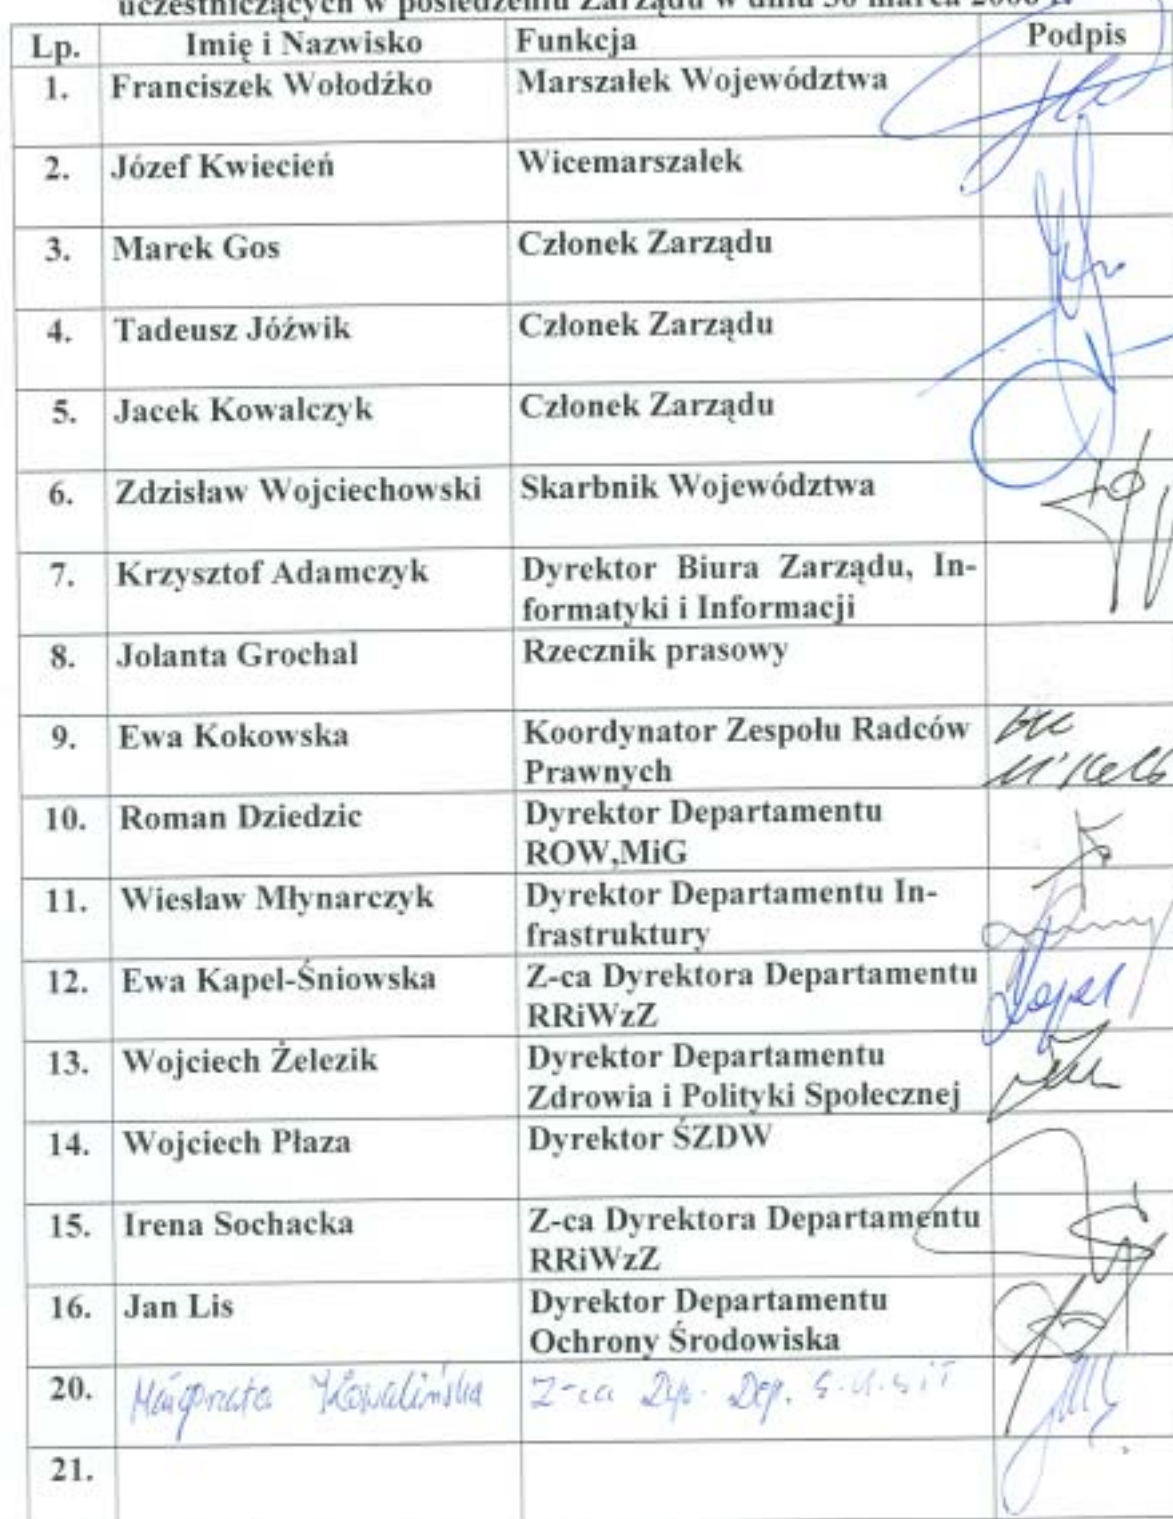 uczestniczących w posiedzeniu Zarządu w dniu 30 marca
Lp. Imię i Nazwisko Funkcja Podpis
1. Franciszek Wołodźko Marszałek Województwa
2. Józef Kwiecień Wicemarszałek
3. Marek Gos Członek Zarządu
4. Tadeusz Jóźwik Członek Zarządu
5. Jacek Kowalczyk Członek Zarządu
6. Zdzisław Wojciechowski Skarbnik Województwa
7. Krzysztof Adamczyk Dyrektor Biura Zarządu, In-
formatyki i Informacji
8. Jolanta Grochal Rzecznik prasowy
9. Ewa Kokowska Koordynator Zespołu Radców
Prawnych
10. Roman Dziedzic Dyrektor Departamentu
ROW,MiG
11. Wiesław Młynarczyk Dyrektor Departamentu In-
frastruktury
12. Ewa Kapel-Śniowska Z-ca Dyrektora Departamentu
RRiWzZ
13. Wojciech Żelezik Dyrektor Departamentu
Zdrowia i Polityki Społecznej
14. Wojciech Płaza Dyrektor ŚZDW
15. Irena Sochacka Z-ca Dyrektora Departamentu
RRiWzZ
16. Jan Lis Dyrektor Departamentu
Ochrony Środowiska
20. Małgorzata Kowalińska Z-ca Dyr. Dep.
21.